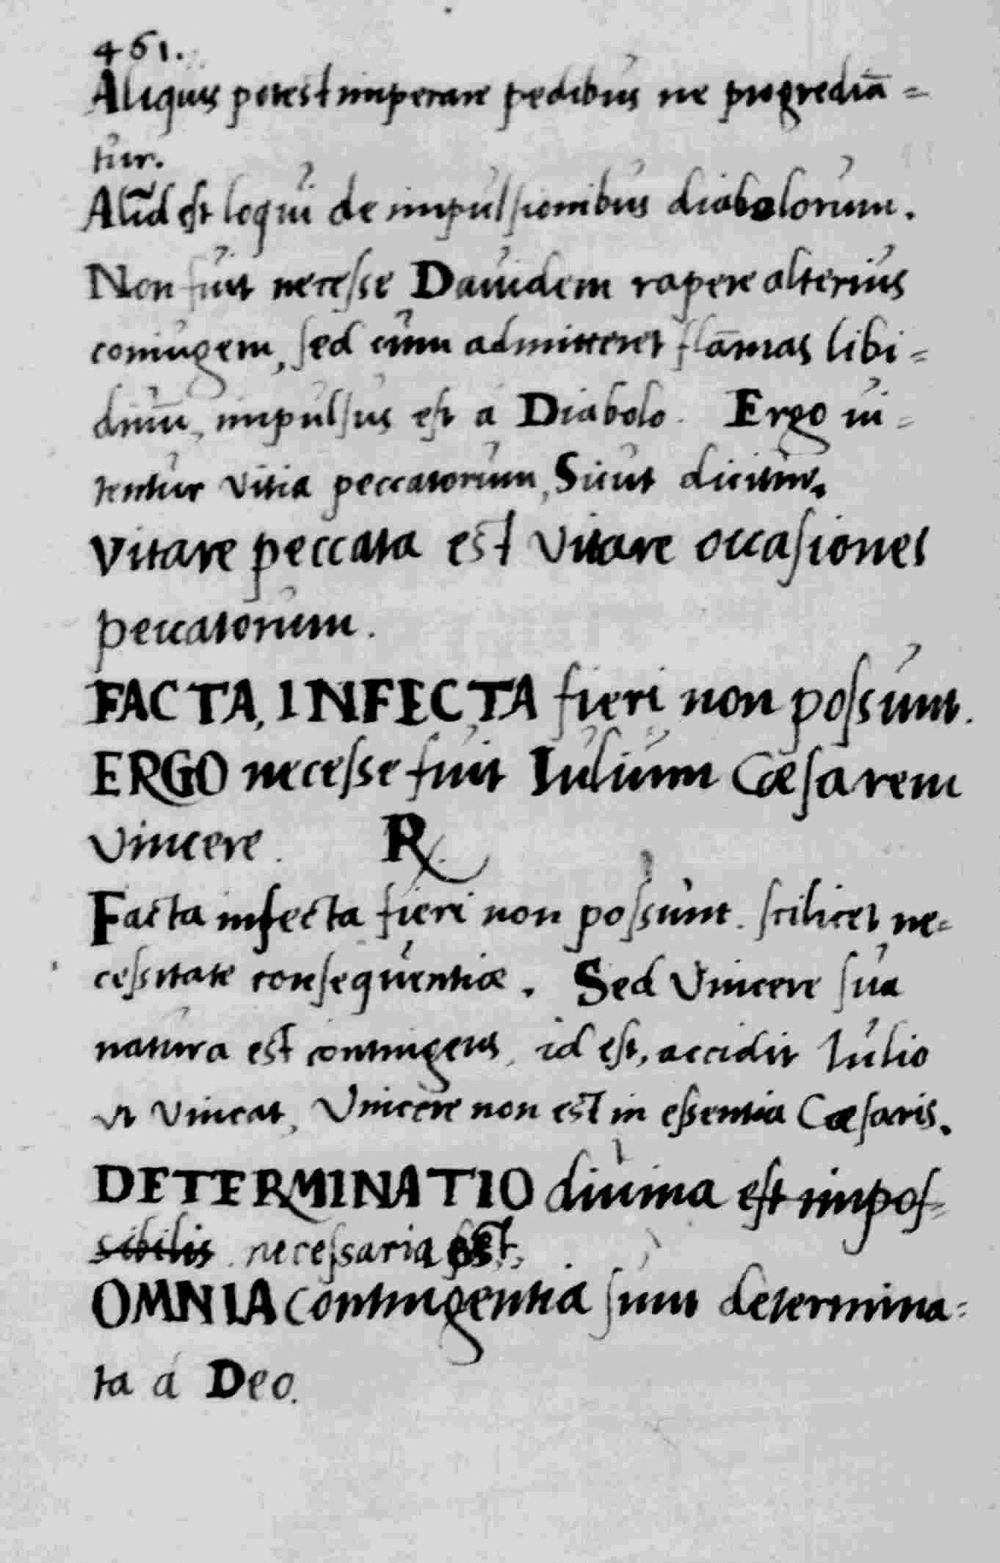 461.
Aliquis potest imperare pedibus ne progrediā=
tur.
Aliūd est loqui de impulsionibus diabolorum.
Non fuit necesse Dauidem rapere alterius
coniugem, sed cum admitteret flām̄as libi=
dinū, impulsus est á Diabolo. Ergo ui=
tentur vitia peccatorum, Sicut dicitur.
Vitare peccata est vitare occasiones
peccatorum.
FACTA, INFECTA fieri non possunt.
ERGO necesse fuit Iulium Cæsarem
Vincere. R.
Facta infecta fieri non possunt. scilicet ne=
cessitate consequentiæ. Sed Vincere sua
natura est contingens, id est, accidit Iulio
ut Vincat, Vincere non est in essentia Cæsaris.
DETERMINATIO diuina est impos=
sibilis necessaria est.
OMNIA contingentia sunt determina=
ta á Deo.